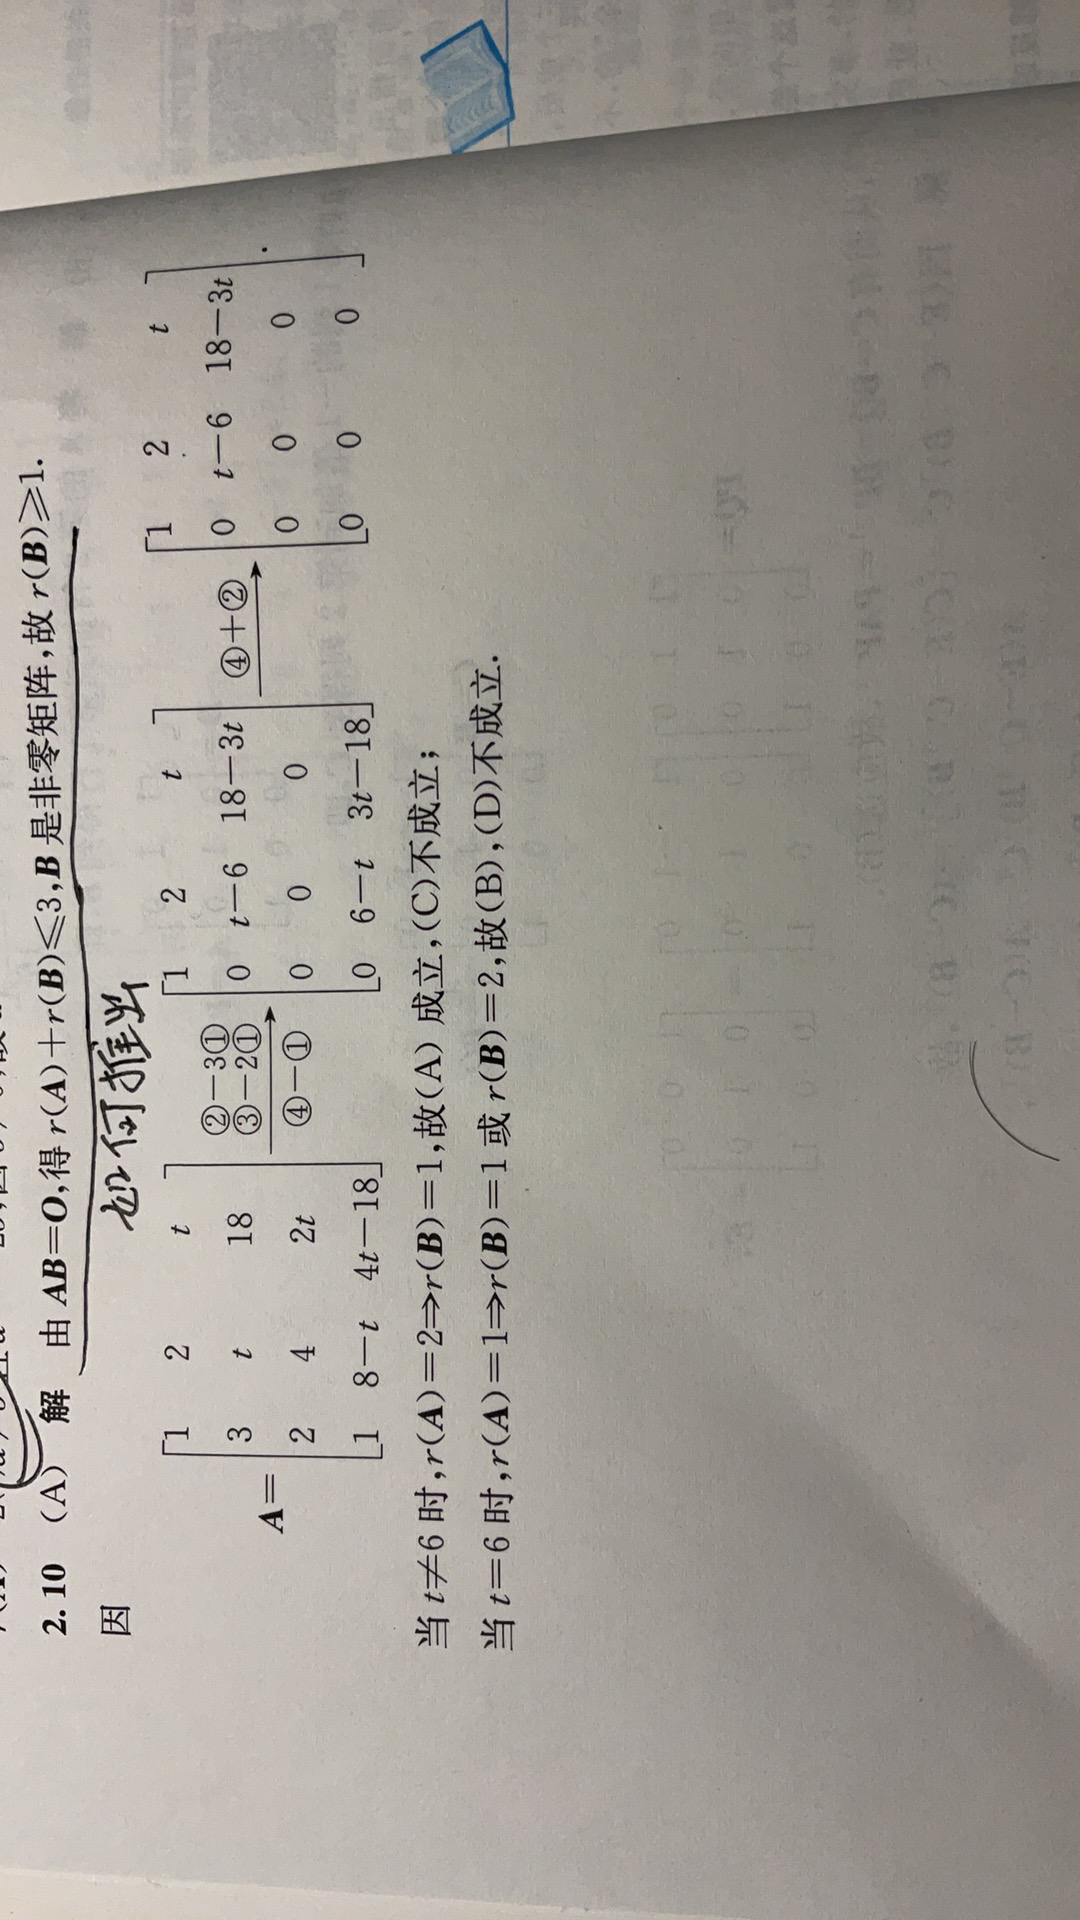 2.10 (A) 解 由 AB=O,得 r(A)+r(B)≤3,B 是非零矩阵,故 r(B)≥1.
如何推出
因
A= [1 2 t; 3 t 18; 2 4 2t; 1 8-t 4t-18] ②-3① ③-2① ④-① → [1 2 t; 0 t-6 18-3t; 0 0 0; 0 6-t 3t-18] ④+② → [1 2 t; 0 t-6 18-3t; 0 0 0; 0 0 0].
当 t≠6 时,r(A)=2⇒r(B)=1,故(A) 成立,(C)不成立;
当 t=6 时,r(A)=1⇒r(B)=1 或 r(B)=2,故(B),(D)不成立.